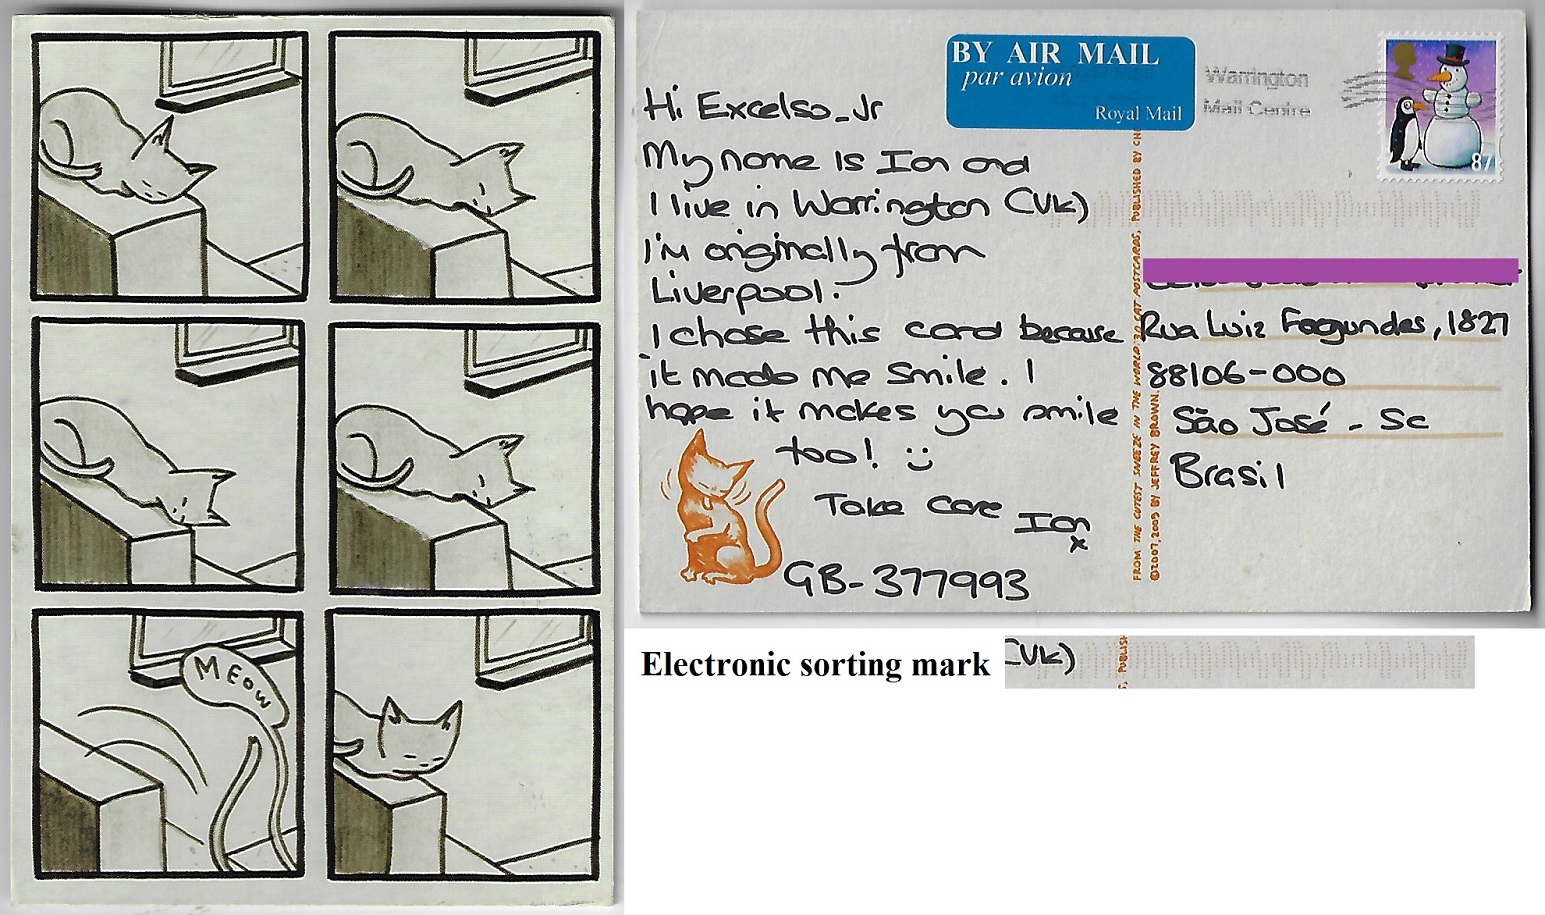 MEOW
BY AIR MAIL
par avion
Royal Mail
Warrington
Mail Centre
87
Hi Excelso_Jr
My name is Ian and
I live in Warrington (UK)
I'm originally from
Liverpool.
I chose this card because
it made me smile. I
hope it makes you smile
too!
Take care
Ian
x
GB-377993
FROM THE CUTEST SNEEZE IN THE WORLD: 30 CAT POSTCARDS, PUBLISHED BY CH
©2007, 2009 BY JEFFREY BROWN.
Rua Luiz Fagundes, 1827
88106-000
São José - SC
Brasil
Electronic sorting mark
(UK)
S, PUBLISH